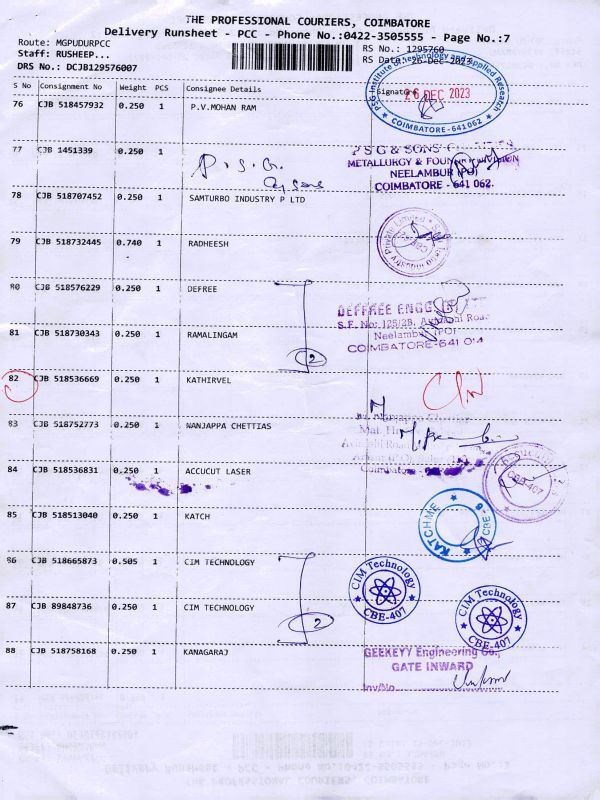 THE PROFESSIONAL COURIERS, COIMBATORE
Delivery Runsheet - PCC - Phone No.:0422-3505555 - Page No.:7
Route: MGPUDURPCC
Staff: RUSHEEP...
DRS No.: DCJB129576007
RS No.: 1295760
RS Date.: 26-Dec-2023
S No Consignment No Weight PCS Consignee Details Signature
PSG Institute of Technology and Applied Research
26 DEC 2023
COIMBATORE-641062
76 CJB 518457932 0.250 1 P.V.MOHAN RAM
77 CJB 1451339 0.250 1
P.S.G.
PSG & SONS
METALLURGY & FOUNDRY DIVISION
NEELAMBUR (PO)
COIMBATORE - 641 062.
78 CJB 518707452 0.250 1 SAMTURBO INDUSTRY P LTD
79 CJB 518732445 0.740 1 RADHEESH
80 CJB 518576229 0.250 1 DEFREE
DEFFREE ENGG
S.F. No: 125/2B, Avinashi Road
Neelambur (PO)
COIMBATORE-641 014
81 CJB 518730343 0.250 1 RAMALINGAM
2
82 CJB 518536669 0.250 1 KATHIRVEL
83 CJB 518752773 0.250 1 NANJAPPA CHETTIAS
84 CJB 518536831 0.250 1 ACCUCUT LASER
CBE-407
85 CJB 518513040 0.250 1 KATCH
KATCHME
CBE-6
86 CJB 518665873 0.505 1 CIM TECHNOLOGY
CIM Technology
CBE-407
87 CJB 89848736 0.250 1 CIM TECHNOLOGY
2
CIM Technology
CBE-407
88 CJB 518758168 0.250 1 KANAGARAJ
GEEKEYY Engineering Co.,
GATE INWARD
Inv/No